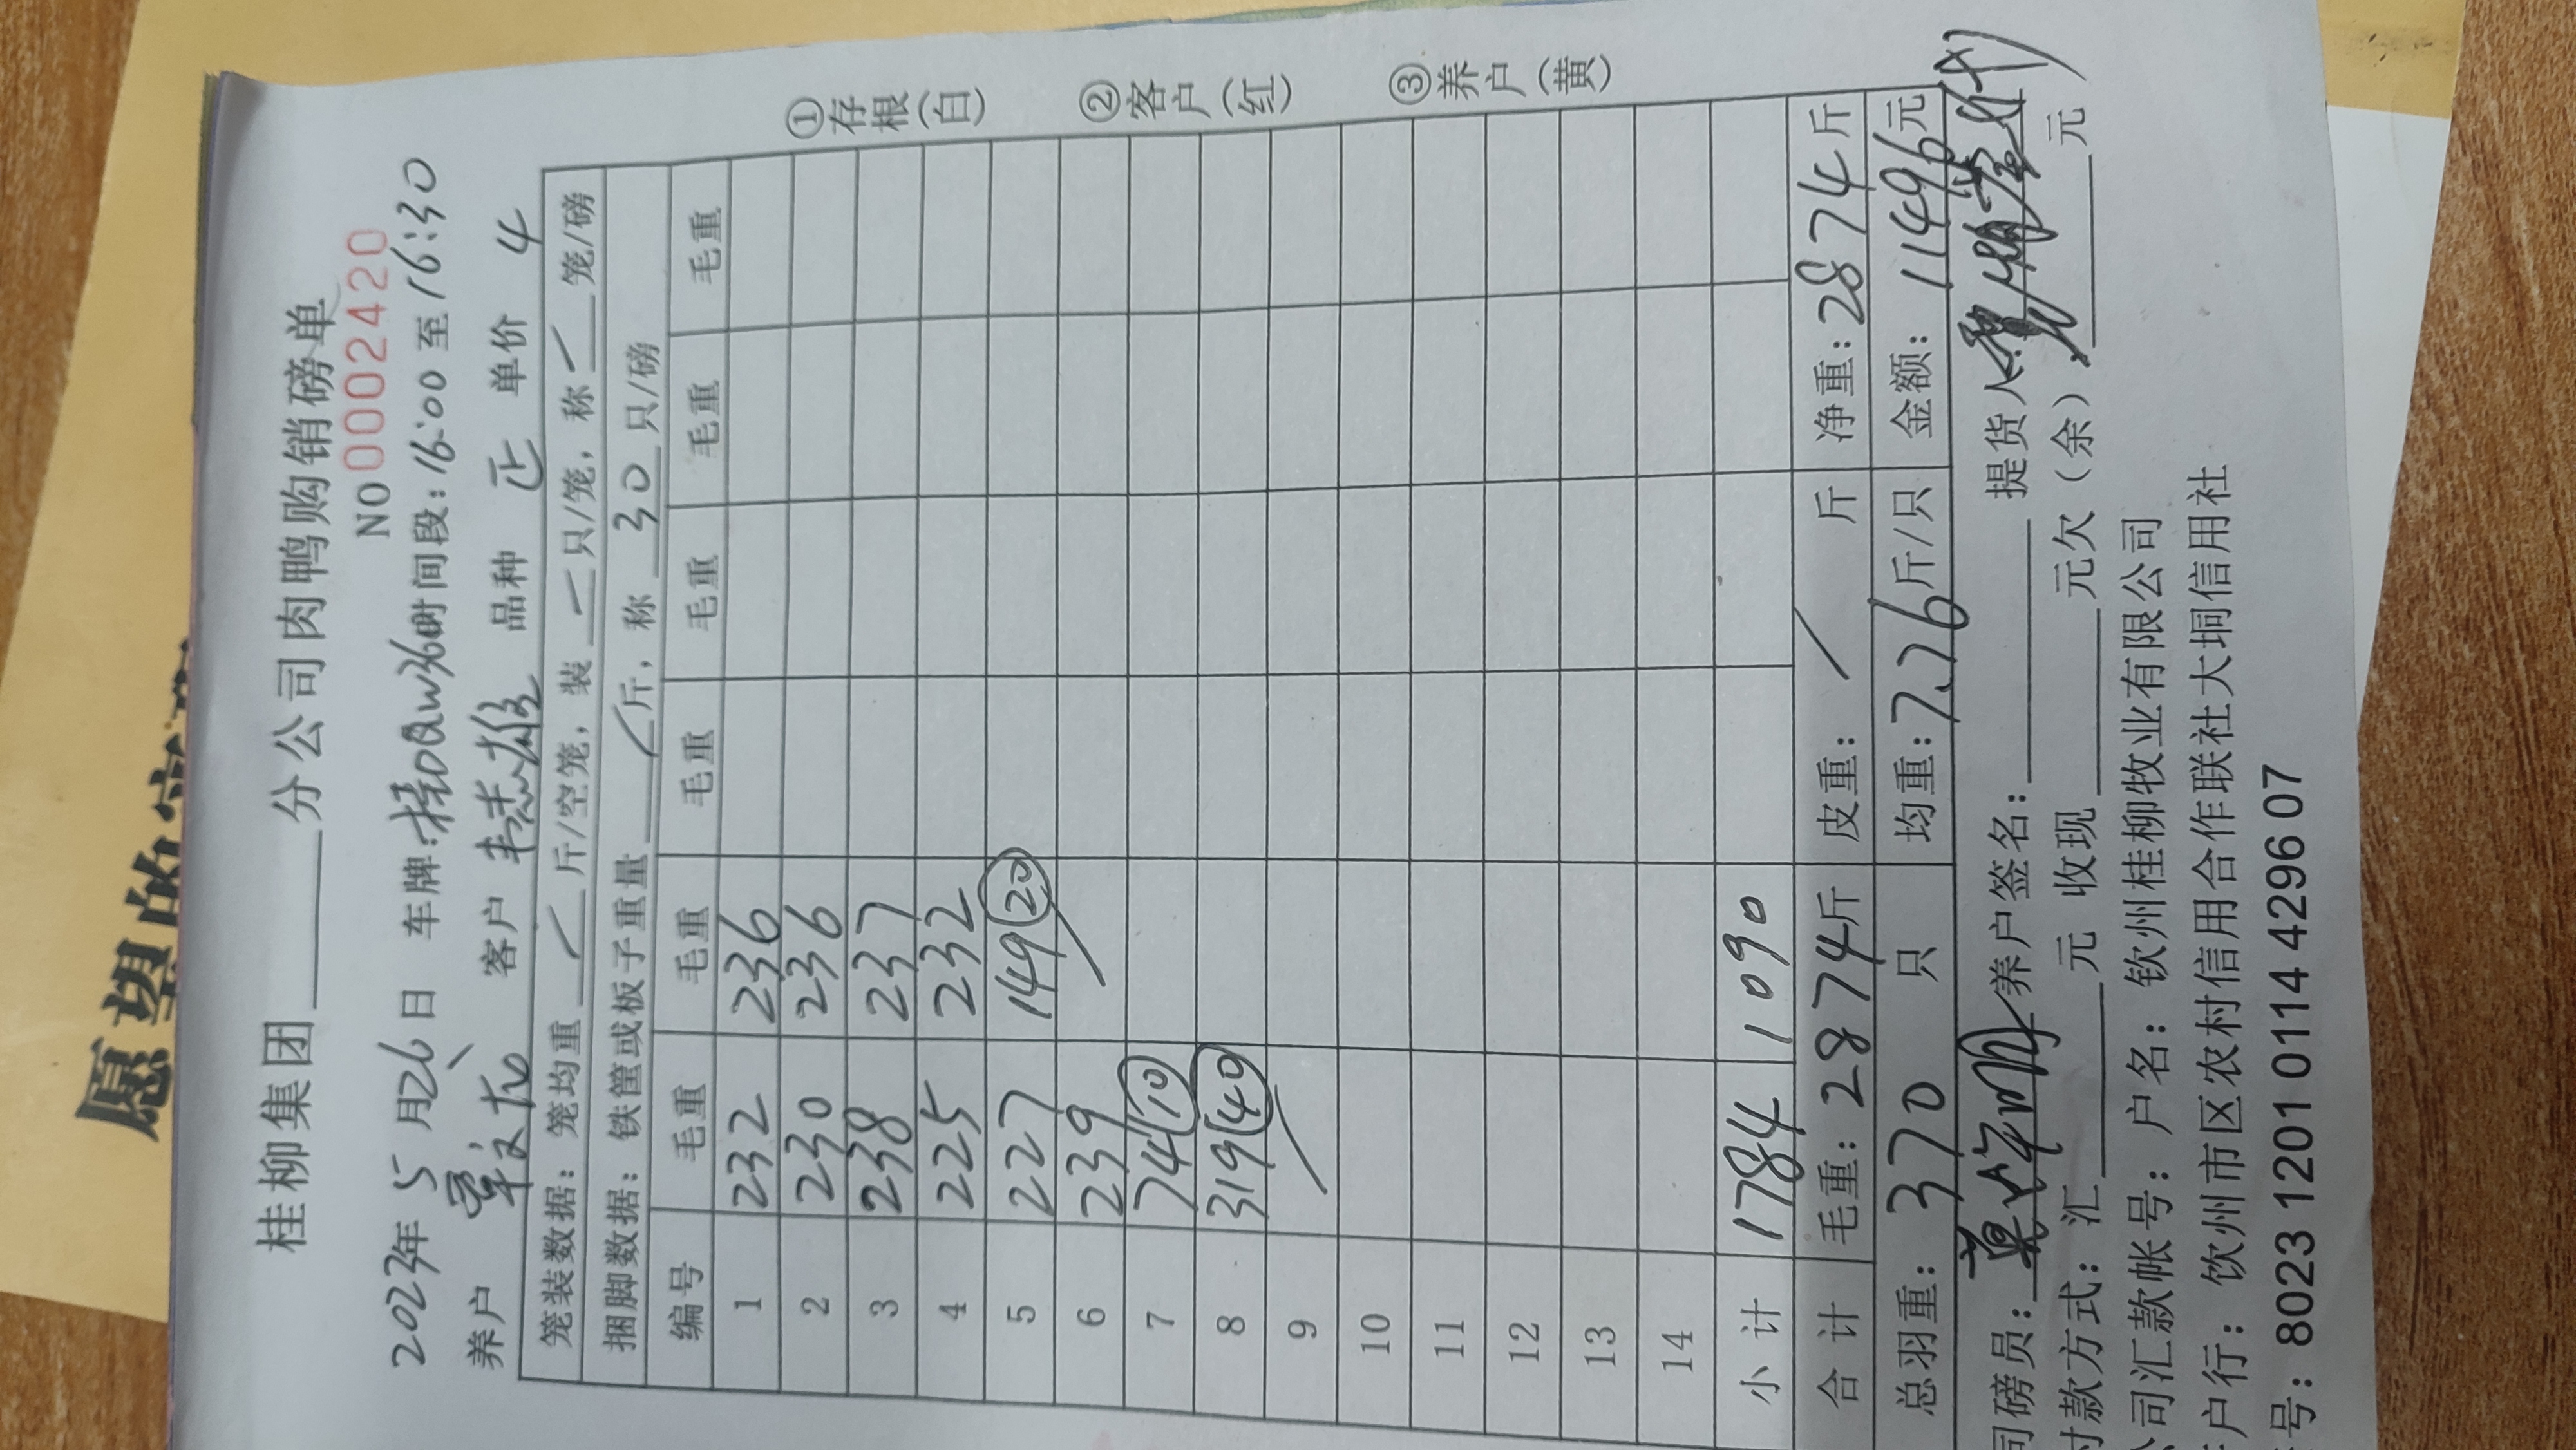 愿望的实
桂柳集团____分公司肉鸭购销磅单
NO 0002420
2023年 5 月 26 日 车牌:桂 时间段:16:00 至 16:30
养户 覃文龙 客户 韦志雄 品种 正 单价 4
笼装数据: 笼均重 / 斤/空笼, 装 / 只/笼, 称 / 笼/磅
捆脚数据: 铁筐或板子重量 / 斤, 称 30 只/磅
编号 毛重 毛重 毛重 毛重 毛重 毛重
1 232 236
2 230 236
3 238 237
4 225 232
5 227 149 (20)
6 239
7 74 (10)
8 319 (40)
9
10
11
12
13
14
小计 1784 1090
合计 毛重: 2874斤 皮重: / 斤 净重: 2874斤
总羽重: 370 只 均重: 7.76斤/只 金额: 11496元
司磅员: 养户签名: 提货人 (代)
付款方式: 汇____元 收现____元欠(余)____元
公司汇款帐号: 户名: 钦州桂柳牧业有限公司
户行: 钦州市区农村信用合作联社大垌信用社
号: 8023 1201 0114 4296 07
①存根(白) ②客户(红) ③养户(黄)